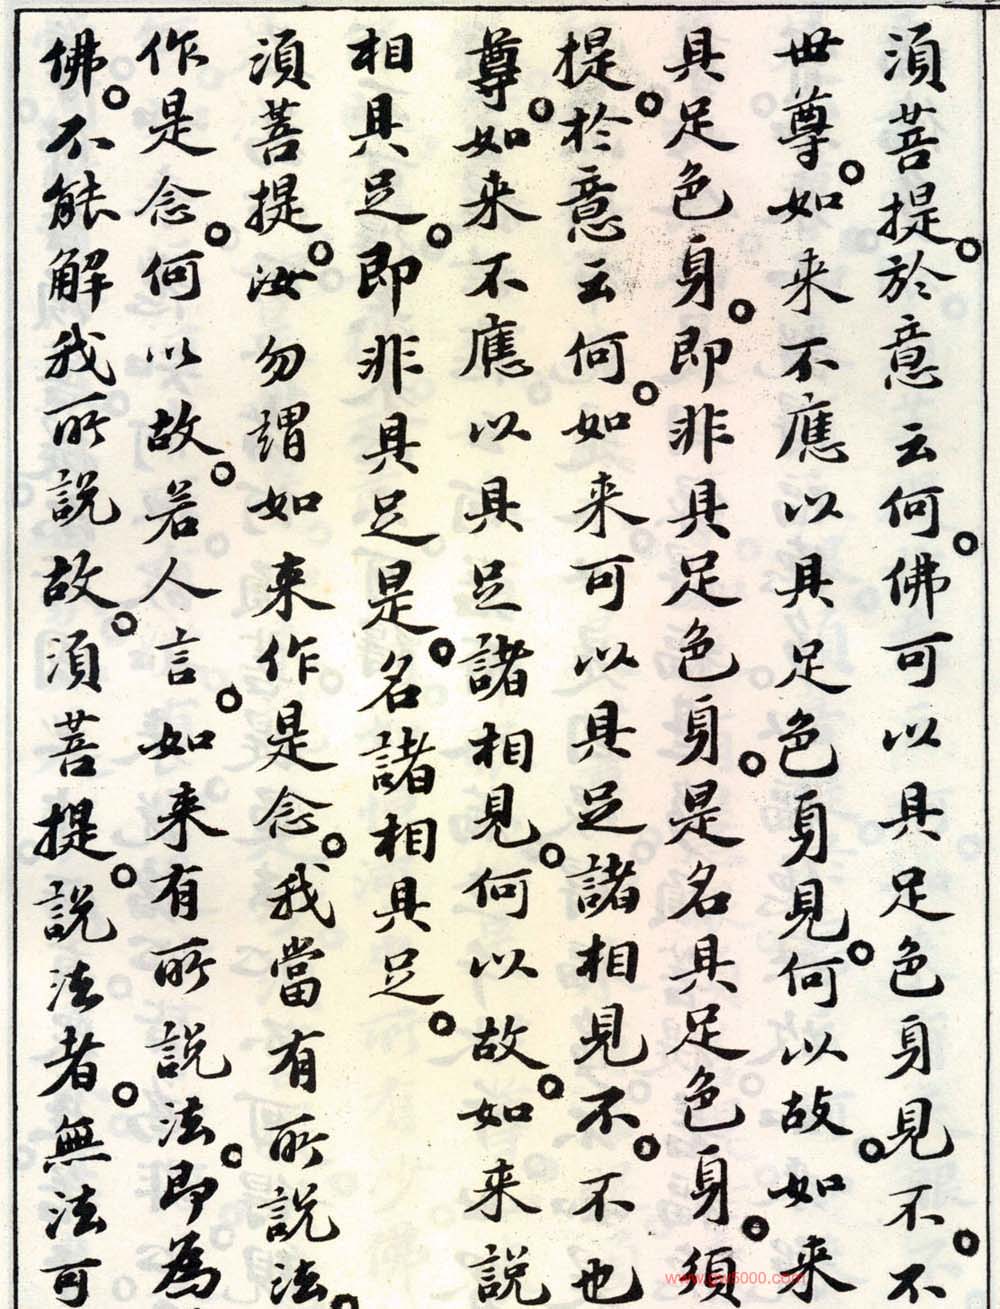 湏菩提。於意云何。佛可以具足色身見不。不
世尊。如来不應以具足色身見。何以故。如来
具足色身。即非具足色身。是名具足色身。須
提。於意云何。如来可以具足諸相見不。不也
尊。如来不應以具足諸相見。何以故。如来説
相具足。即非具足是。名諸相具足。
湏菩提。汝勿謂如来作是念。我當有所説法。
作是念。何以故。若人言。如来有所説法。即為
佛。不能解我所説故。湏菩提。説法者。無法可